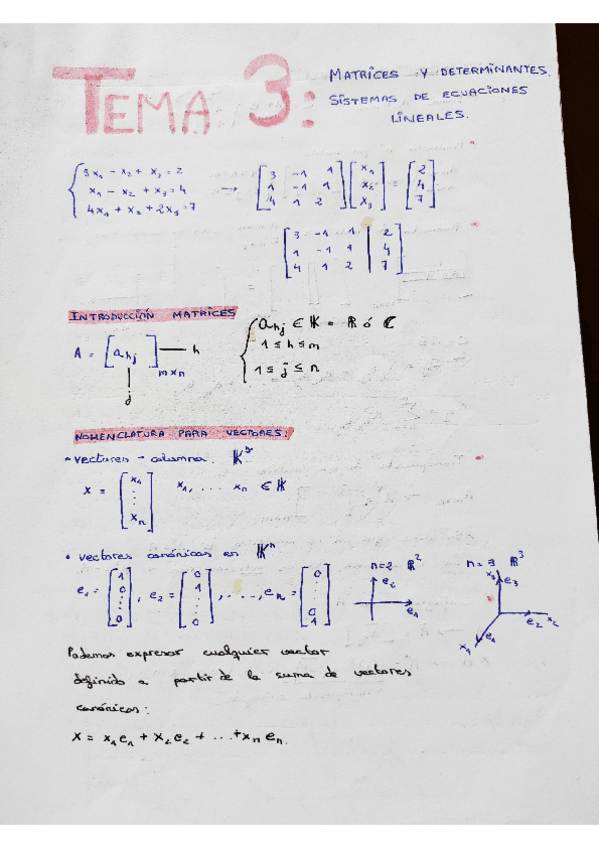 TEMA 3:
MATRICES Y DETERMINANTES.
SISTEMAS DE ECUACIONES
LINEALES.
{ 3x₁ - x₂ + x₃ = 2
x₁ - x₂ + x₃ = 4
4x₁ + x₂ + 2x₃ = 7
→ [3 -1 1; 1 -1 1; 4 1 2] [x₁; x₂; x₃] = [2; 4; 7]
[3 -1 1 | 2; 1 -1 1 | 4; 4 1 2 | 7]
INTRODUCCIÓN MATRICES
A = [a_hj]_mxn — h
j
{ a_hj ∈ K = R ó C
1 ≤ h ≤ m
1 ≤ j ≤ n
NOMENCLATURA PARA VECTORES:
• vectores - columna.
x = [x₁; ⋮; xₙ] x₁, ... xₙ ∈ K
• vectores canónicos en Kⁿ
e₁ = [1; 0; ⋮; 0], e₂ = [0; 1; ⋮; 0], ...., eₙ = [0; ⋮; 0; 1]
n=2 R²
e₂
e₁
n=3 R³
x₃ e₃
e₂ x₂
x₁ e₁
Podemos expresar cualquier vector
definido a partir de la suma de vectores
canónicos:
x = x₁e₁ + x₂e₂ + ... + xₙeₙ.